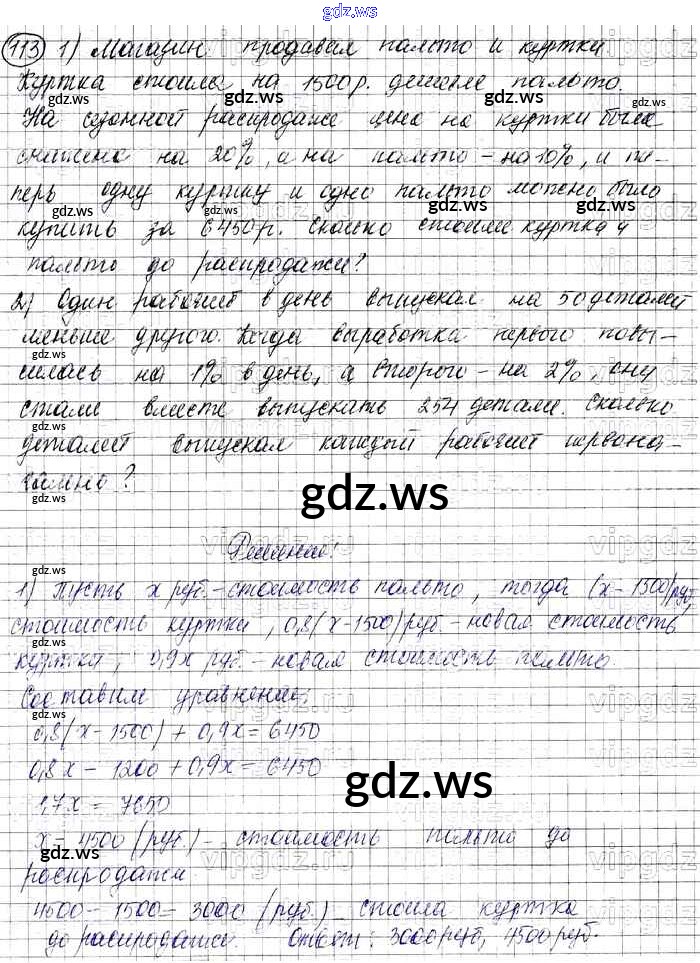 gdz.ws
113 1) Магазин продавал пальто и куртки.
Куртка стоила на 1500р. дешевле пальто.
gdz.ws gdz.ws gdz.ws
На сезонной распродаже цена на куртки была
снижена на 20%, а на пальто - на 10%, и те-
перь одну куртку и одно пальто можно было
gdz.ws gdz.ws gdz.ws
купить за 6450р. Сколько стоили куртка и
пальто до распродажи?
2) Один рабочий в день выпускал на 50 деталей
меньше другого. Когда выработка первого повы-
gdz.ws
силась на 1% в день, а второго - на 2%, они
стали вместе выпускать 254 детали. Сколько
деталей выпускал каждый рабочий первона-
gdz.ws
чально?
gdz.ws
Решение:
gdz.ws
1) Пусть x руб. - стоимость пальто, тогда (x - 1500) руб.
стоимость куртки, 0,8(x - 1500) руб. - новая стоимость
куртки, 0,9x руб. - новая стоимость пальто.
Составим уравнение:
gdz.ws
0,8(x - 1500) + 0,9x = 6450
0,8x - 1200 + 0,9x = 6450
gdz.ws
1,7x = 7650
x = 4500 (руб.) - стоимость пальто до
gdz.ws
распродажи
4500 - 1500 = 3000 (руб.) - стоила куртка
до распродажи. Ответ: 3000 руб, 4500 руб.
gdz.ws